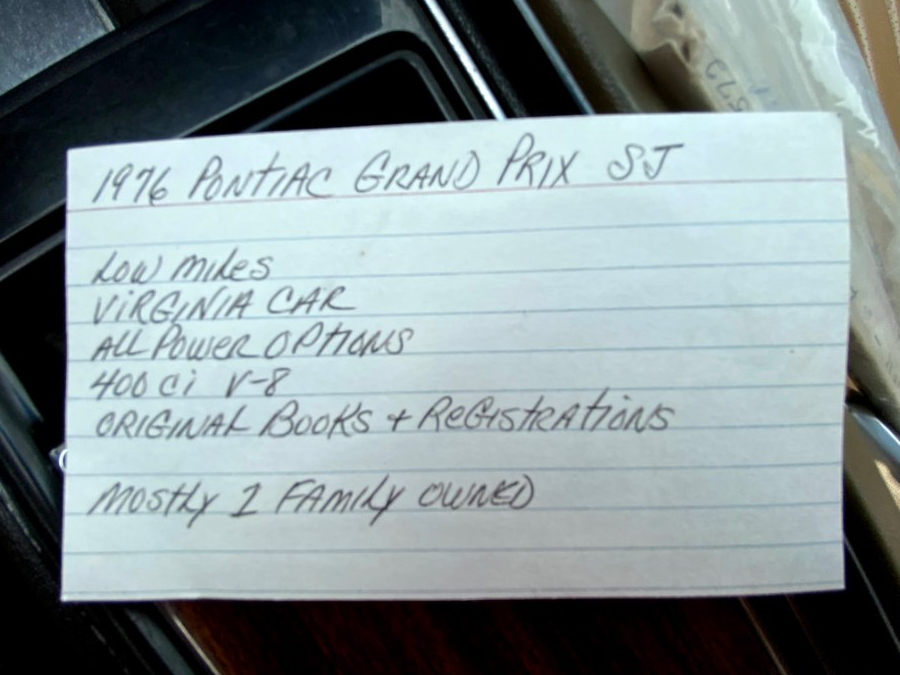 1976 PONTIAC GRAND PRIX SJ
LOW MILES
VIRGINIA CAR
ALL POWER OPTIONS
400 ci V-8
ORIGINAL BOOKS + REGISTRATIONS
MOSTLY 1 FAMILY OWNED